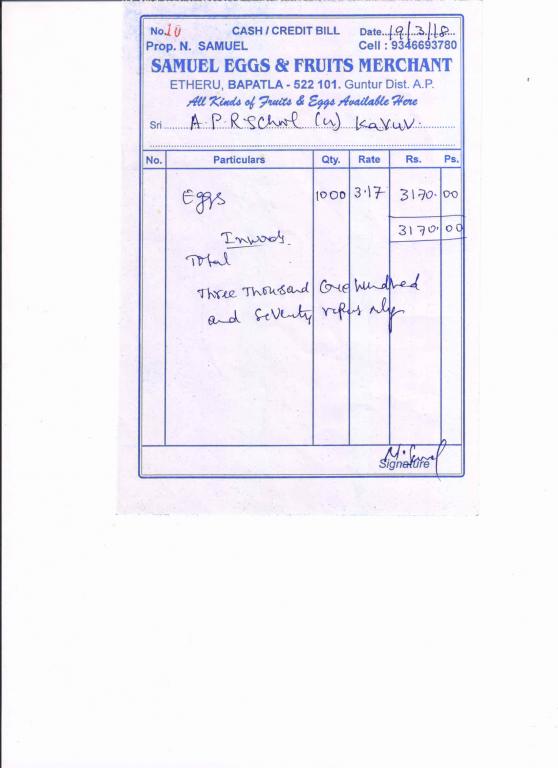 No. 10 CASH / CREDIT BILL Date. 19/3/18
Prop. N. SAMUEL Cell : 9346693780
SAMUEL EGGS & FRUITS MERCHANT
ETHERU, BAPATLA - 522 101. Guntur Dist. A.P.
All Kinds of Fruits & Eggs Available Here
Sri A.P.R School (u) Kavur.
No. Particulars Qty. Rate Rs. Ps.
Eggs 1000 3.17 3170. 00
Inwods. 3170. 00
Total
Three Thousand One hundred
and Seventy only
Signature